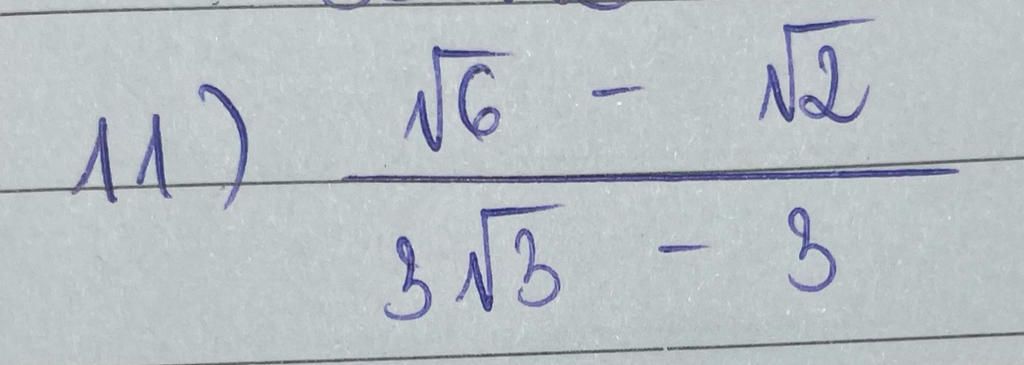 11) √6 - √2
3√3 - 3